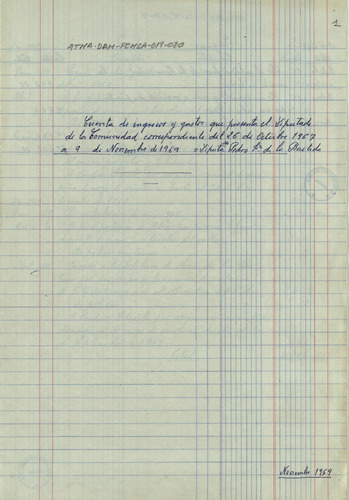 1
ATHA-DAH-FCMSA-019-020
Cuenta de ingresos y gastos que presenta el Diputado
de la Comunidad correspondiente del 26 de Octubre 1967
a 9 de Noviembre de 1969 = Diputado Pedro de la
Noviembre 1969